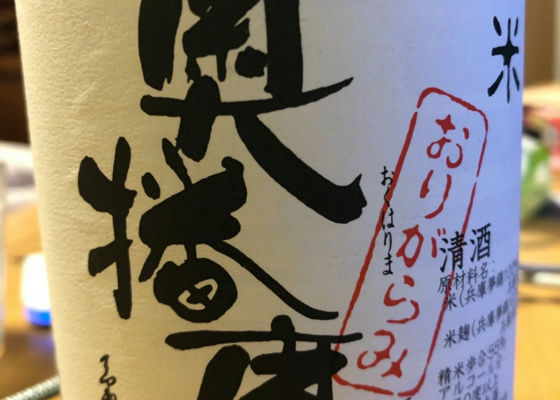 米
奥播磨
おくはりま
おりがらみ
清酒
原材料名：
米（兵庫
米麹（兵庫
精米歩合55%
アルコール